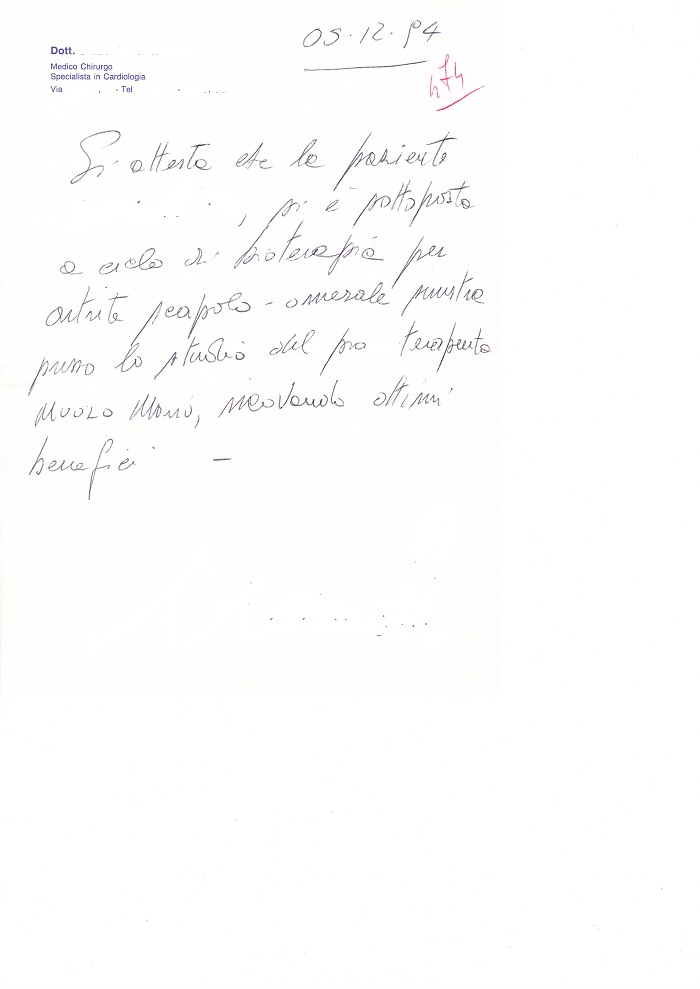 Dott.
Medico Chirurgo
Specialista in Cardiologia
Via , - Tel
05.12.94
474
Si attesta che la paziente
, si è sottoposta
a ciclo di fisioterapia per
artrite scapolo-omerale sinistra
presso lo studio del terapeuta
Muolo Mario, ricavando ottimi
benefici -